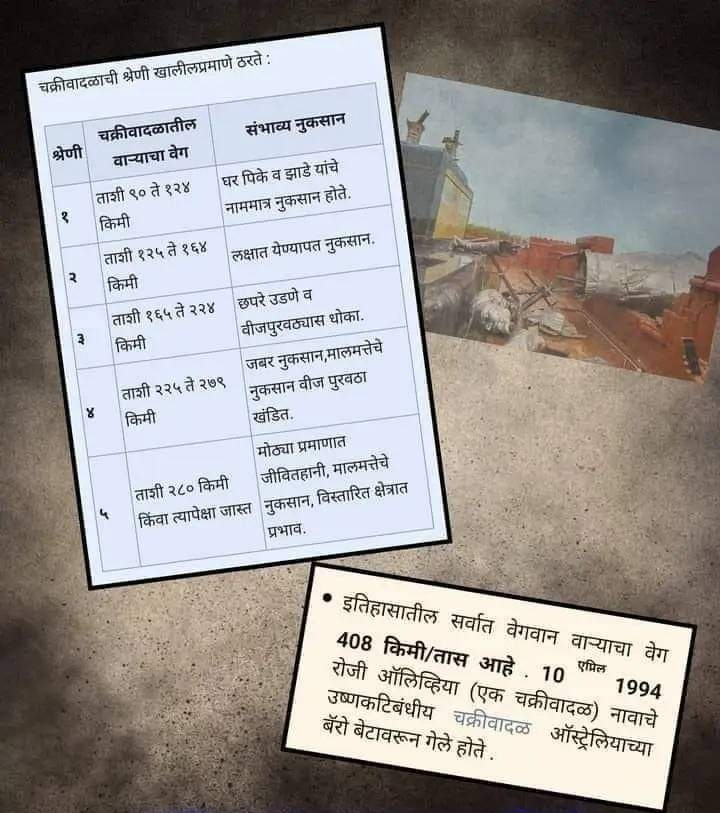 चक्रीवादळाची श्रेणी खालीलप्रमाणे ठरते :
श्रेणी
चक्रीवादळातील
वाऱ्याचा वेग
संभाव्य नुकसान
१
ताशी ९० ते १२४
किमी
घर पिके व झाडे यांचे
नाममात्र नुकसान होते.
२
ताशी १२५ ते १६४
किमी
लक्षात येण्यापत नुकसान.
३
ताशी १६५ ते २२४
किमी
छपरे उडणे व
वीजपुरवठ्यास धोका.
४
ताशी २२५ ते २७९
किमी
जबर नुकसान,मालमत्तेचे
नुकसान वीज पुरवठा
खंडित.
५
ताशी २८० किमी
किंवा त्यापेक्षा जास्त
मोठ्या प्रमाणात
जीवितहानी, मालमत्तेचे
नुकसान, विस्तारित क्षेत्रात
प्रभाव.
• इतिहासातील सर्वात वेगवान वाऱ्याचा वेग
408 किमी/तास आहे . 10 एप्रिल 1994
रोजी ऑलिव्हिया (एक चक्रीवादळ) नावाचे
उष्णकटिबंधीय चक्रीवादळ ऑस्ट्रेलियाच्या
बॅरो बेटावरून गेले होते .